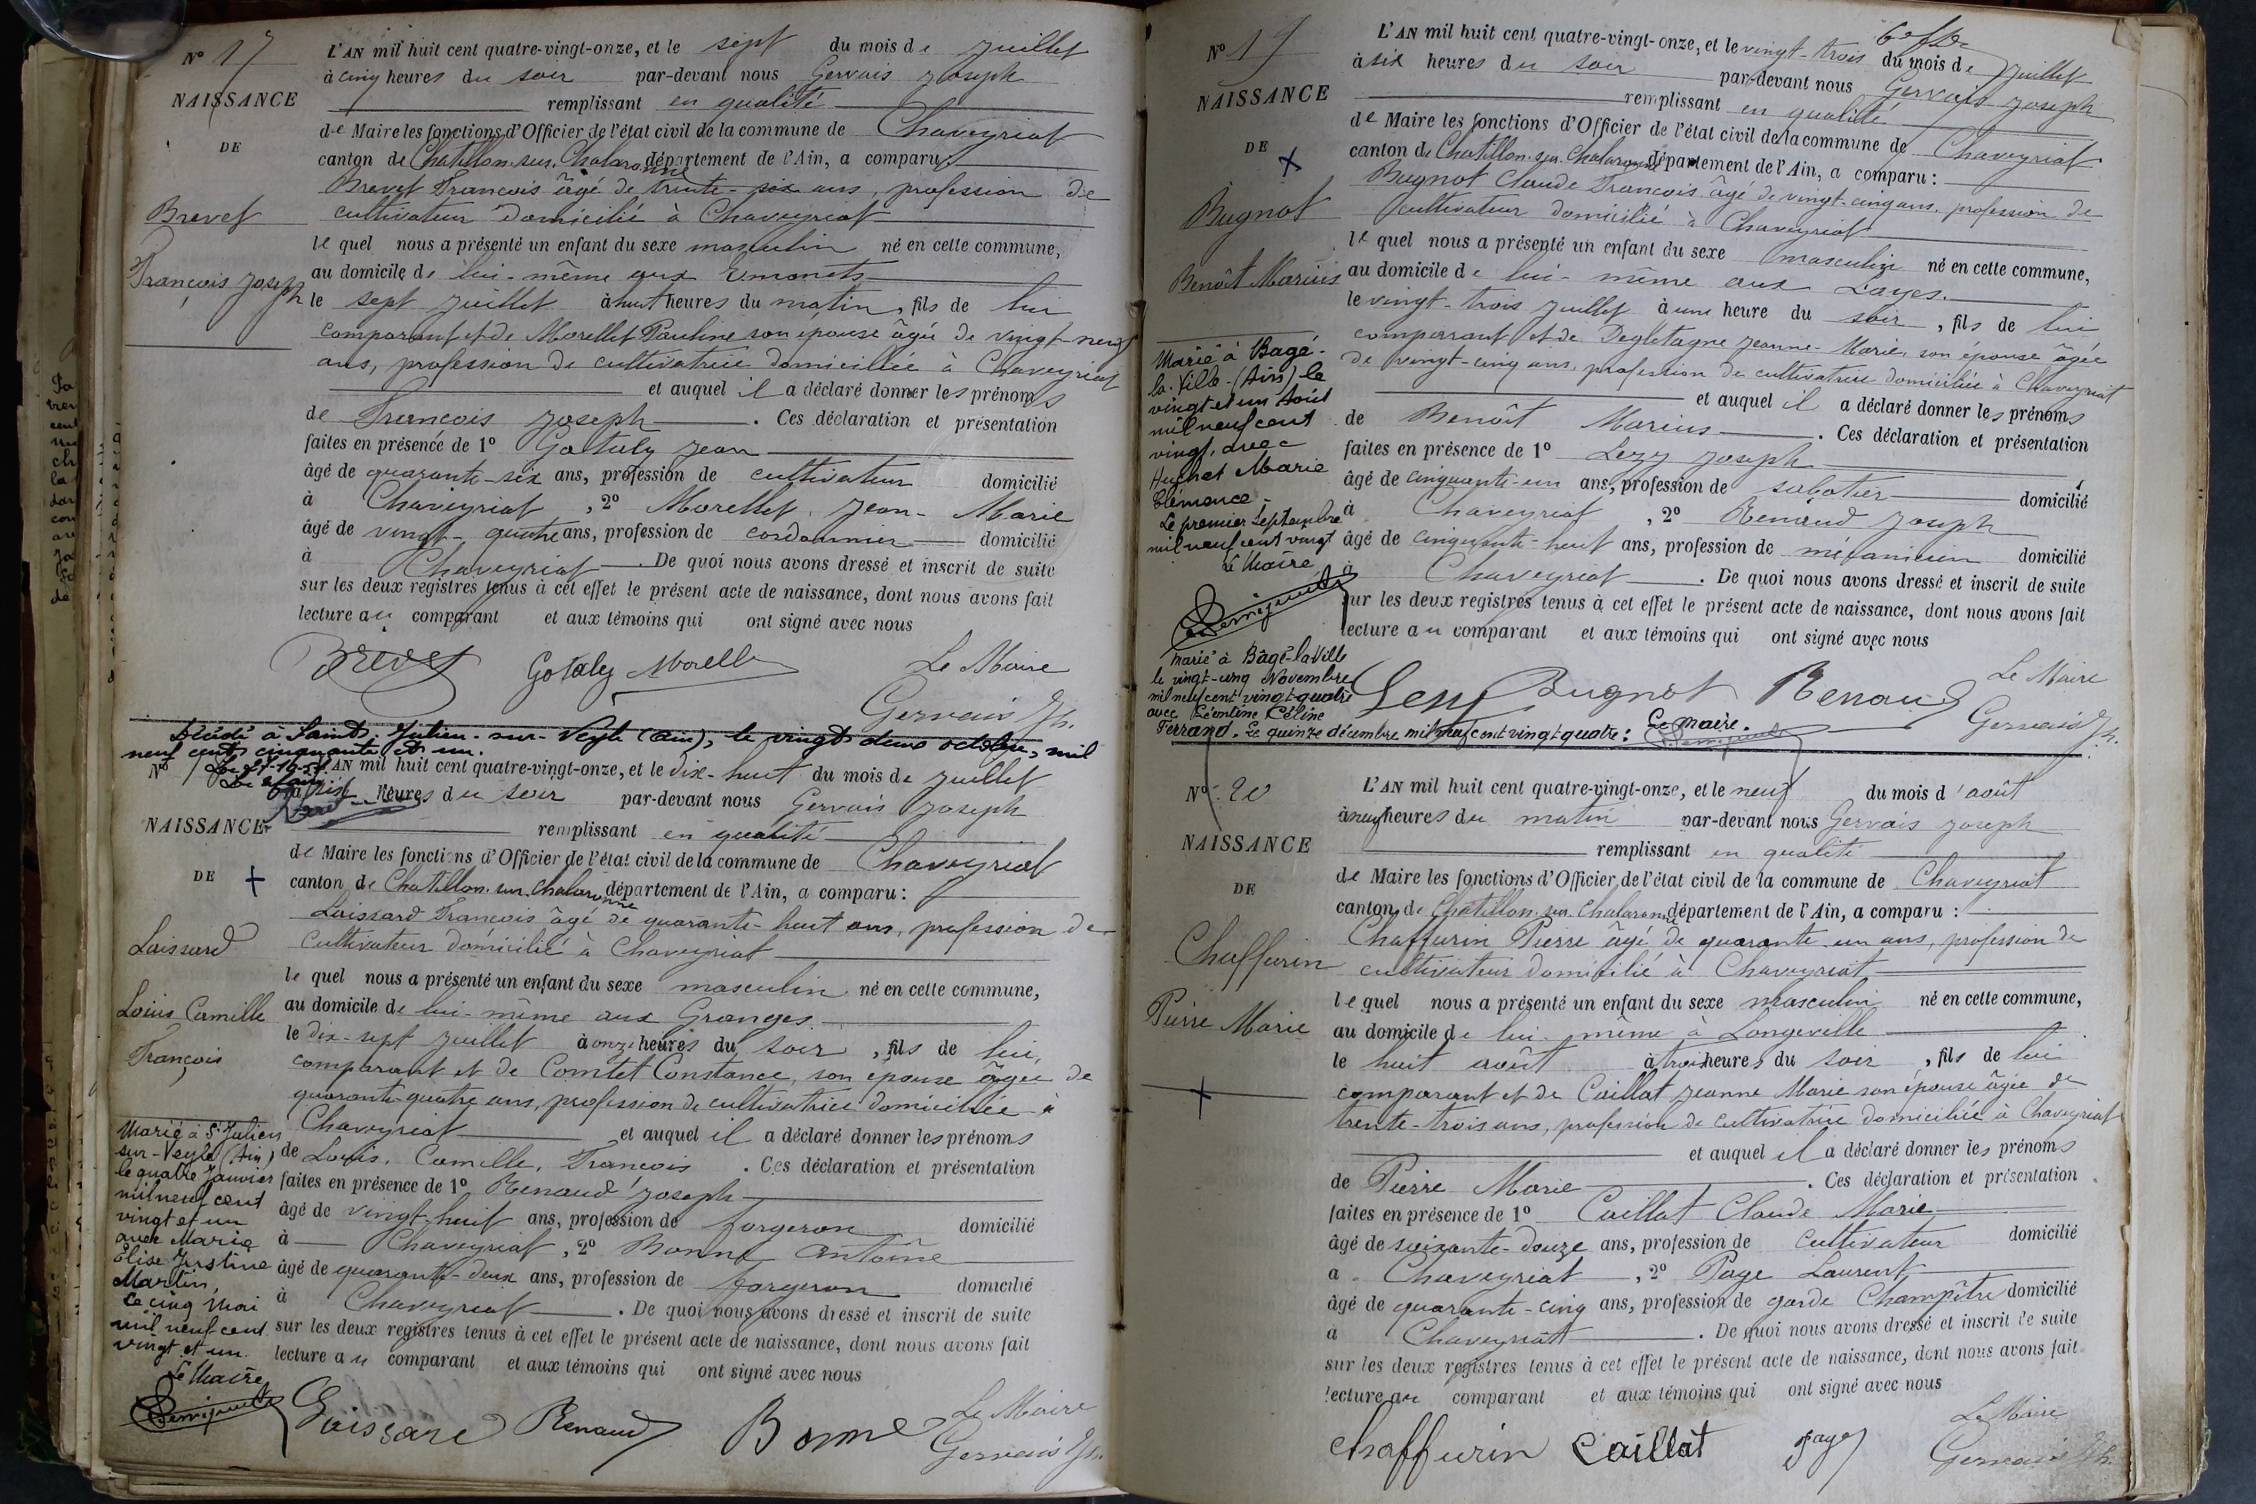 N° 17
NAISSANCE
DE
Brevet
François Joseph
L'AN mil huit cent quatre-vingt-onze, et le sept du mois de juillet
à cinq heures du soir par-devant nous Gervais Joseph
remplissant en qualité
de Maire les fonctions d'Officier de l'état civil de la commune de Chaveyriat
canton de Chatillon-sur-Chalaronne département de l'Ain, a comparu :
Brevet François âgé de trente-six ans, profession de
cultivateur domicilié à Chaveyriat
lequel nous a présenté un enfant du sexe masculin né en cette commune,
au domicile de lui-même aux Emonets
le sept juillet à huit heures du matin, fils de lui
comparant et de Morellet Pauline son épouse âgée de vingt-neuf
ans, profession de cultivatrice domiciliée à Chaveyriat
et auquel il a déclaré donner les prénoms
de François Joseph. Ces déclaration et présentation
faites en présence de 1° Gotaly Jean
âgé de quarante-six ans, profession de cultivateur domicilié
à Chaveyriat, 2° Morellet Jean-Marie
âgé de vingt-quatre ans, profession de cordonnier domicilié
à Chaveyriat. De quoi nous avons dressé et inscrit de suite
sur les deux registres tenus à cet effet le présent acte de naissance, dont nous avons fait
lecture au comparant et aux témoins qui ont signé avec nous
Brevet Gotaly Morellet Le Maire
Gervais Jh.
Décédé à Saint-Julien-sur-Veyle (Ain), le vingt deux octobre, mil
neuf cent cinquante et un.
Le Maire
N°
NAISSANCE
DE
Laissard
Louis Camille
François
Marié à St Julien
sur-Veyle (Ain)
le quatre Janvier
mil neuf cent
vingt et un
avec Marie
Elise Justine
Martin,
Le cinq Mai
mil neuf cent
vingt et un
Le Maire
L'AN mil huit cent quatre-vingt-onze, et le dix-huit du mois de juillet
à six heures du soir par-devant nous Gervais Joseph
remplissant en qualité
de Maire les fonctions d'Officier de l'état civil de la commune de Chaveyriat
canton de Chatillon-sur-Chalaronne département de l'Ain, a comparu :
Laissard François âgé de quarante-huit ans, profession de
cultivateur domicilié à Chaveyriat
lequel nous a présenté un enfant du sexe masculin né en cette commune,
au domicile de lui-même aux Granges
le dix-sept juillet à onze heures du soir, fils de lui,
comparant et de Comtet Constance, son épouse âgée de
quarante-quatre ans, profession de cultivatrice domiciliée à
Chaveyriat et auquel il a déclaré donner les prénoms
de Louis, Camille, François. Ces déclaration et présentation
faites en présence de 1° Renaud Joseph
âgé de vingt-huit ans, profession de forgeron domicilié
à Chaveyriat, 2° Bonne Antoine
âgé de quarante-deux ans, profession de forgeron domicilié
à Chaveyriat. De quoi nous avons dressé et inscrit de suite
sur les deux registres tenus à cet effet le présent acte de naissance, dont nous avons fait
lecture au comparant et aux témoins qui ont signé avec nous
Laissard Renaud Bonne Le Maire
Gervais Jh.
N° 19
NAISSANCE
DE
Bugnot
Benoît Marius
Marié à Bagé-
la-Ville-(Ain) le
vingt et un Août
mil neuf cent
vingt, avec
Huchet Marie
Clémence
Le premier Septembre
mil neuf cent vingt
Le Maire,
marié à Bâgé-la-Ville
le vingt-cinq Novembre
mil neuf cent vingt-quatre
avec Léontine Céline
Ferrand. Le quinze décembre mil neuf cent vingt-quatre : Le maire.
L'AN mil huit cent quatre-vingt-onze, et le vingt-trois du mois de juillet
à six heures du soir par-devant nous Gervais Joseph
remplissant en qualité
de Maire les fonctions d'Officier de l'état civil de la commune de Chaveyriat
canton de Chatillon-sur-Chalaronne département de l'Ain, a comparu :
Bugnot Claude François âgé de vingt-cinq ans, profession de
cultivateur domicilié à Chaveyriat
lequel nous a présenté un enfant du sexe masculin né en cette commune,
au domicile de lui-même aux Layes.
le vingt-trois juillet à une heure du soir, fils de lui
comparant et de Degletagne Jeanne-Marie, son épouse âgée
de vingt-cinq ans, profession de cultivatrice domiciliée à Chaveyriat
et auquel il a déclaré donner les prénoms
de Benoît Marius. Ces déclaration et présentation
faites en présence de 1° Lezy Joseph
âgé de cinquante-un ans, profession de sabotier domicilié
à Chaveyriat, 2° Renaud Joseph
âgé de cinquante-huit ans, profession de mécanicien domicilié
à Chaveyriat. De quoi nous avons dressé et inscrit de suite
sur les deux registres tenus à cet effet le présent acte de naissance, dont nous avons fait
lecture au comparant et aux témoins qui ont signé avec nous
Bugnot Renaud Le Maire
Gervais Jh.
N° 20
NAISSANCE
DE
Chaffurin
Pierre Marie
L'AN mil huit cent quatre-vingt-onze, et le neuf du mois d'août
à neuf heures du matin par-devant nous Gervais Joseph
remplissant en qualité
de Maire les fonctions d'Officier de l'état civil de la commune de Chaveyriat
canton de Chatillon-sur-Chalaronne département de l'Ain, a comparu :
Chaffurin Pierre âgé de quarante-un ans, profession de
cultivateur domicilié à Chaveyriat
lequel nous a présenté un enfant du sexe masculin né en cette commune,
au domicile de lui-même à Longeville
le huit août à trois heures du soir, fils de lui
comparant et de Caillat Jeanne Marie son épouse âgée de
trente-trois ans, profession de cultivatrice domiciliée à Chaveyriat
et auquel il a déclaré donner les prénoms
de Pierre Marie. Ces déclaration et présentation
faites en présence de 1° Caillat Claude Marie
âgé de soixante-douze ans, profession de cultivateur domicilié
à Chaveyriat, 2° Page Laurent
âgé de quarante-cinq ans, profession de garde Champêtre domicilié
à Chaveyriat. De quoi nous avons dressé et inscrit de suite
sur les deux registres tenus à cet effet le présent acte de naissance, dont nous avons fait
lecture au comparant et aux témoins qui ont signé avec nous
Chaffurin Caillat Page Le Maire
Gervais Jh.